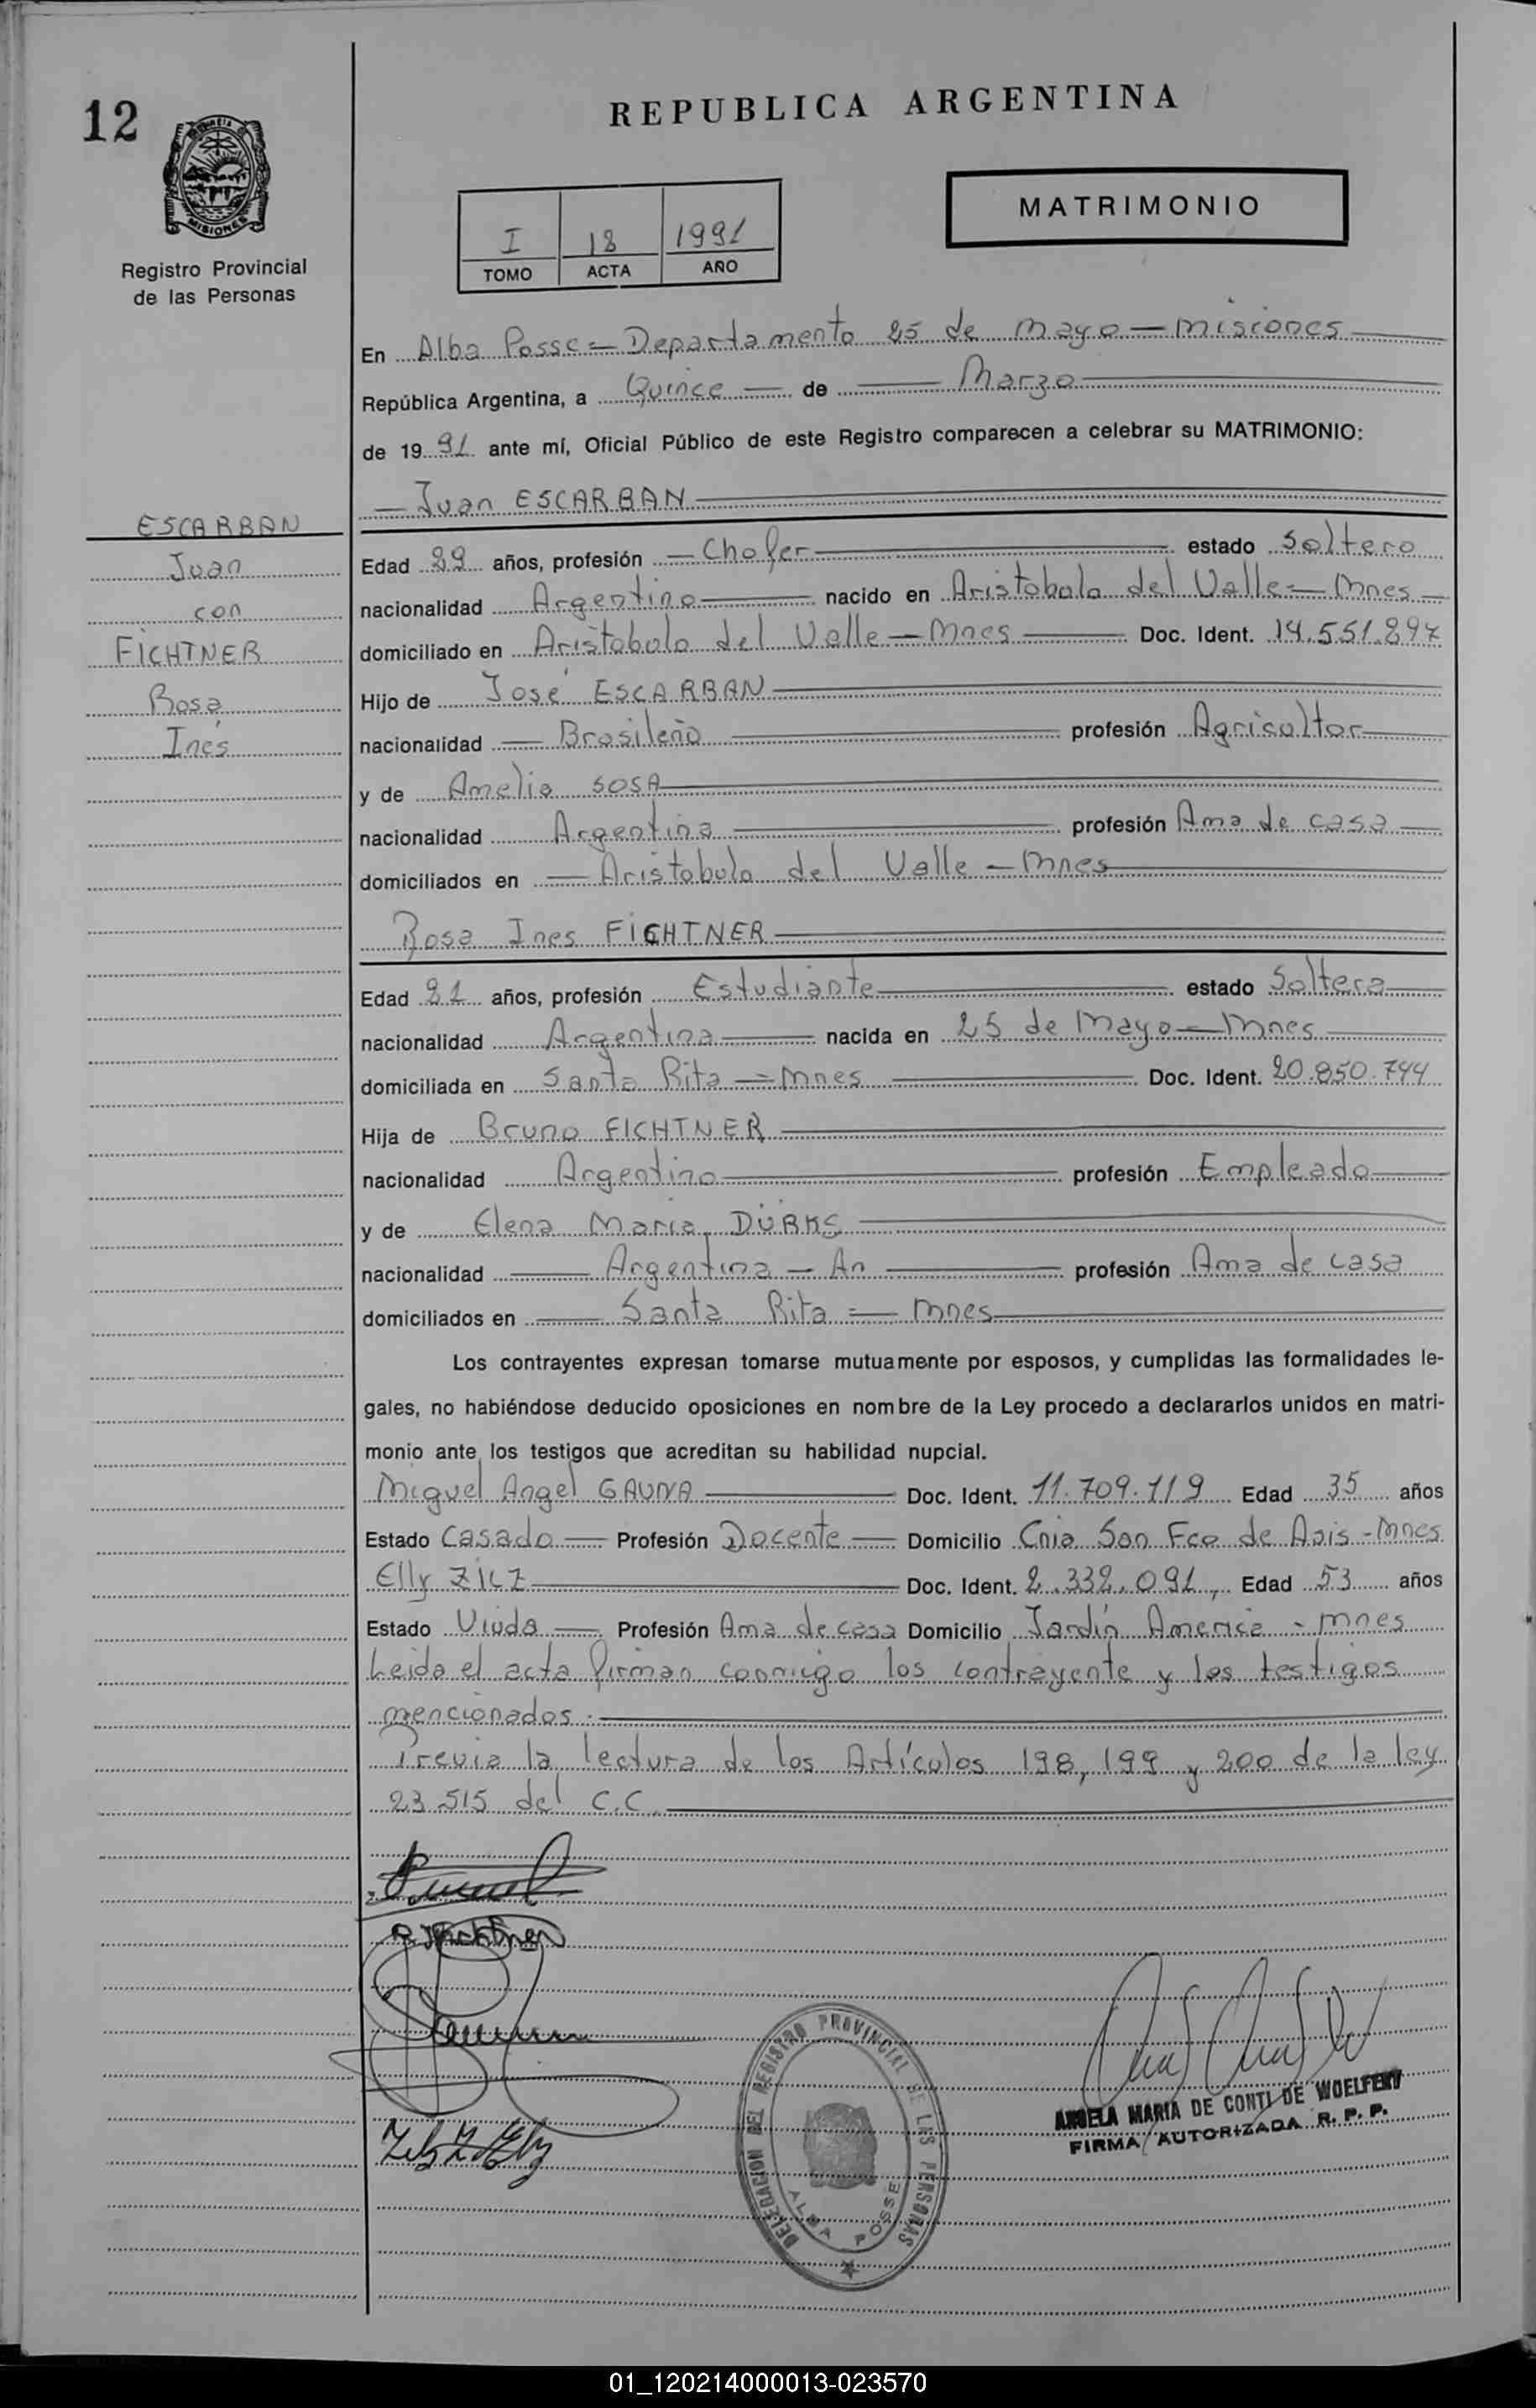 12
REPUBLICA ARGENTINA
MATRIMONIO
I 18 1991
TOMO ACTA AÑO
MISIONES
Registro Provincial
de las Personas
En Alba Posse = Departamento 25 de Mayo — Misiones
República Argentina, a Quince — de — Marzo
de 19 91 ante mí, Oficial Público de este Registro comparecen a celebrar su MATRIMONIO:
— Juan ESCARBAN
ESCARBAN
Juan
con
FICHTNER
Rosa
Inés
Edad 29 años, profesión — Chofer estado Soltero
nacionalidad Argentino nacido en Aristobulo del Valle = Mnes —
domiciliado en Aristobulo del Valle — Mnes Doc. Ident. 14.551.897
Hijo de José ESCARBAN
nacionalidad — Brasileño profesión Agricultor
y de Amelia SOSA
nacionalidad Argentina profesión Ama de casa
domiciliados en — Aristobulo del Valle — Mnes
Rosa Ines FICHTNER
Edad 21 años, profesión Estudiante estado Soltera
nacionalidad Argentina nacida en 25 de Mayo — Mnes
domiciliada en Santa Rita = Mnes Doc. Ident. 20.850.744
Hija de Bruno FICHTNER
nacionalidad Argentino profesión Empleado
y de Elena Maria DÜRKS
nacionalidad Argentina — An profesión Ama de casa
domiciliados en Santa Rita = Mnes
Los contrayentes expresan tomarse mutuamente por esposos, y cumplidas las formalidades le-
gales, no habiéndose deducido oposiciones en nombre de la Ley procedo a declararlos unidos en matri-
monio ante los testigos que acreditan su habilidad nupcial.
Miguel Angel GAUNA Doc. Ident. 11.709.119 Edad 35 años
Estado Casado Profesión Docente Domicilio Cnia San Fco de Asis - Mnes
Elly ZILZ Doc. Ident. 2.332.091, Edad 53 años
Estado Viuda Profesión Ama de casa Domicilio Jardín America - Mnes
Leida el acta firman conmigo los contrayente y los testigos
mencionados.
Previa la lectura de los Artículos 198, 199 y 200 de la ley
23.515 del C.C.
DELEGACION DEL REGISTRO PROVINCIAL DE LAS PERSONAS
ALBA POSSE
ANGELA MARIA DE CONTI DE WOELFERT
FIRMA AUTORIZADA R. P. P.
01_120214000013-023570